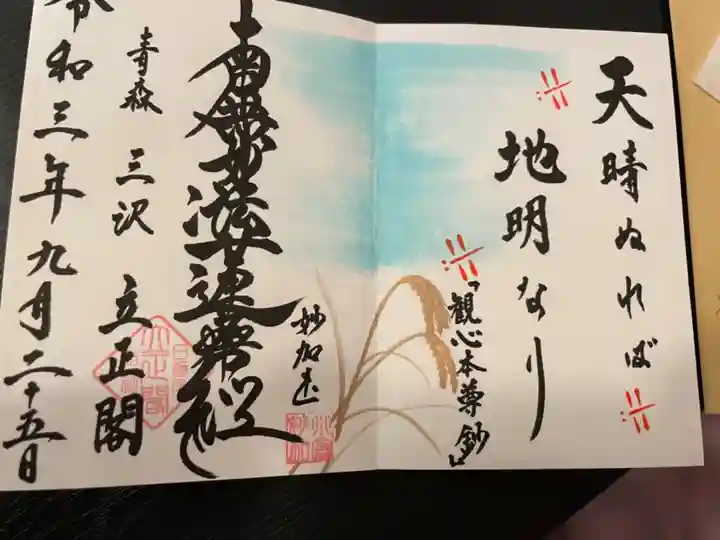 天晴ぬれば
地明なり
「観心本尊鈔」
南無妙法蓮華経
妙加
青森 三沢 立正閣
令和三年九月二十五日